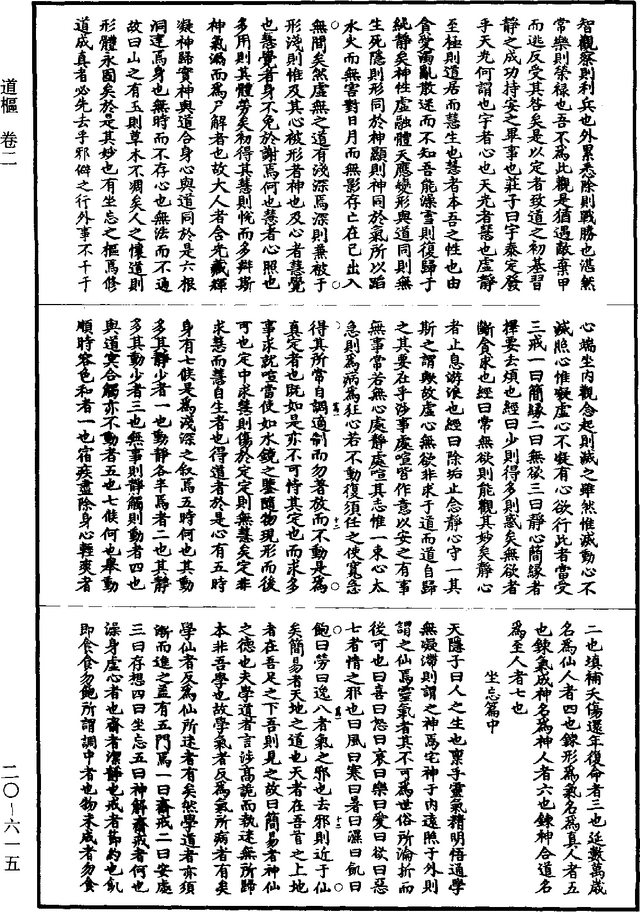 道樞　卷二
二〇—六一五
智觀察則利兵也外累悉除則戰勝也湛然
常樂則榮祿也吾不爲此觀是猶遇敵棄甲
而逃反受其咎矣是以定者致道之初基習
靜之成功持安之畢事也莊子曰宇泰定發
乎天光何謂也宇者心也天光者慧也虛靜
至極則道居而慧生也慧者本吾之性也由
貪愛濁亂散迷而不知吾能澡雪則復歸于
純靜矣神性虛融體天應變形與道同則無
生死隱則形同於神顯則神同於氣所以蹈
水火而無害對日月而無影存亡在己出入
無間矣然虛無之道有淺深焉深則兼被于
形淺則惟及其心被形者神也及心者慧覺
也慧覺者身不免於謝焉何也慧者心照也
多用則其體勞矣初得其慧則悅而多辯斯
神氣漏而爲尸解者也故大人者含光藏輝
凝神歸實神與道合身心與道同於是六根
洞達焉身也無時而不存心也無法而不通
故曰山之有玉則草木不凋矣人之懷道則
形體永固矣於是其妙也有坐忘之樞焉修
道成真者必先去乎邪僻之行外事不干于
心端坐內觀念起則滅之雖然惟滅動心不
滅照心惟凝虛心不凝有心欲行此者當受
三戒一曰簡緣二曰無欲三曰靜心簡緣者
擇要去煩也經曰少則得多則惑矣無欲者
斷貪求也經曰常無欲則能觀其妙矣靜心
者止息游浪也經曰除垢止念靜心守一其
斯之謂歟故虛心無欲非求于道而道自歸
之其要在乎涉事處喧皆作意以安之有事
無事常若無心處靜處喧其志惟一束心太
急則爲病爲狂心若不動復須任之使寬急
得其所常自調適制而勿著放而不動是爲
真定者也旣如是亦不可恃其定也而求多
事求就喧當使如水鏡之鑒隨物現形而後
可也定中求慧則傷於定定則無慧矣定非
求慧而慧自生者也得道者於是心有五時
身有七候是爲淺深之叙焉五時何也其動
多其靜少者一也動靜各半焉者二也其靜
多其動少者三也無事則靜觸則動者四也
與道冥合觸亦不動者五也七候何也舉動
順時容色和者一也宿疾盡除身心輕爽者
二也填補夭傷還年復命者三也延數萬歲
名爲仙人者四也鍊形爲氣名爲真人者五
也鍊氣成神名爲神人者六也鍊神合道名
爲至人者七也
坐忘篇中
天隱子曰人之生也稟乎靈氣精明悟通學
無凝滯則謂之神焉宅神于內遠照于外則
謂之仙焉靈氣者其不可爲世俗所淪折而
後可也曰喜曰怒曰哀曰樂曰愛曰欲曰惡
七者情之邪也曰風曰寒曰暑曰濕曰飢曰
飽曰勞曰逸八者氣之邪也去邪則近于仙
矣簡易者天地之道也天者在吾首之上地
者在吾足之下吾則見之故曰簡易者神仙
之德也夫學道者言涉高詭而執迷無所歸
本非吾學也故學氣者反爲氣所病者有矣
學仙者反爲仙所迷者有矣然學道者亦須
漸而進之蓋有五門焉一曰齋戒二曰安處
三曰存想四曰坐忘五曰神解齋戒者何也
澡身虛心者也齋者潔靜也戒者節約也飢
即食食勿飽所謂調中者也物未成者勿食